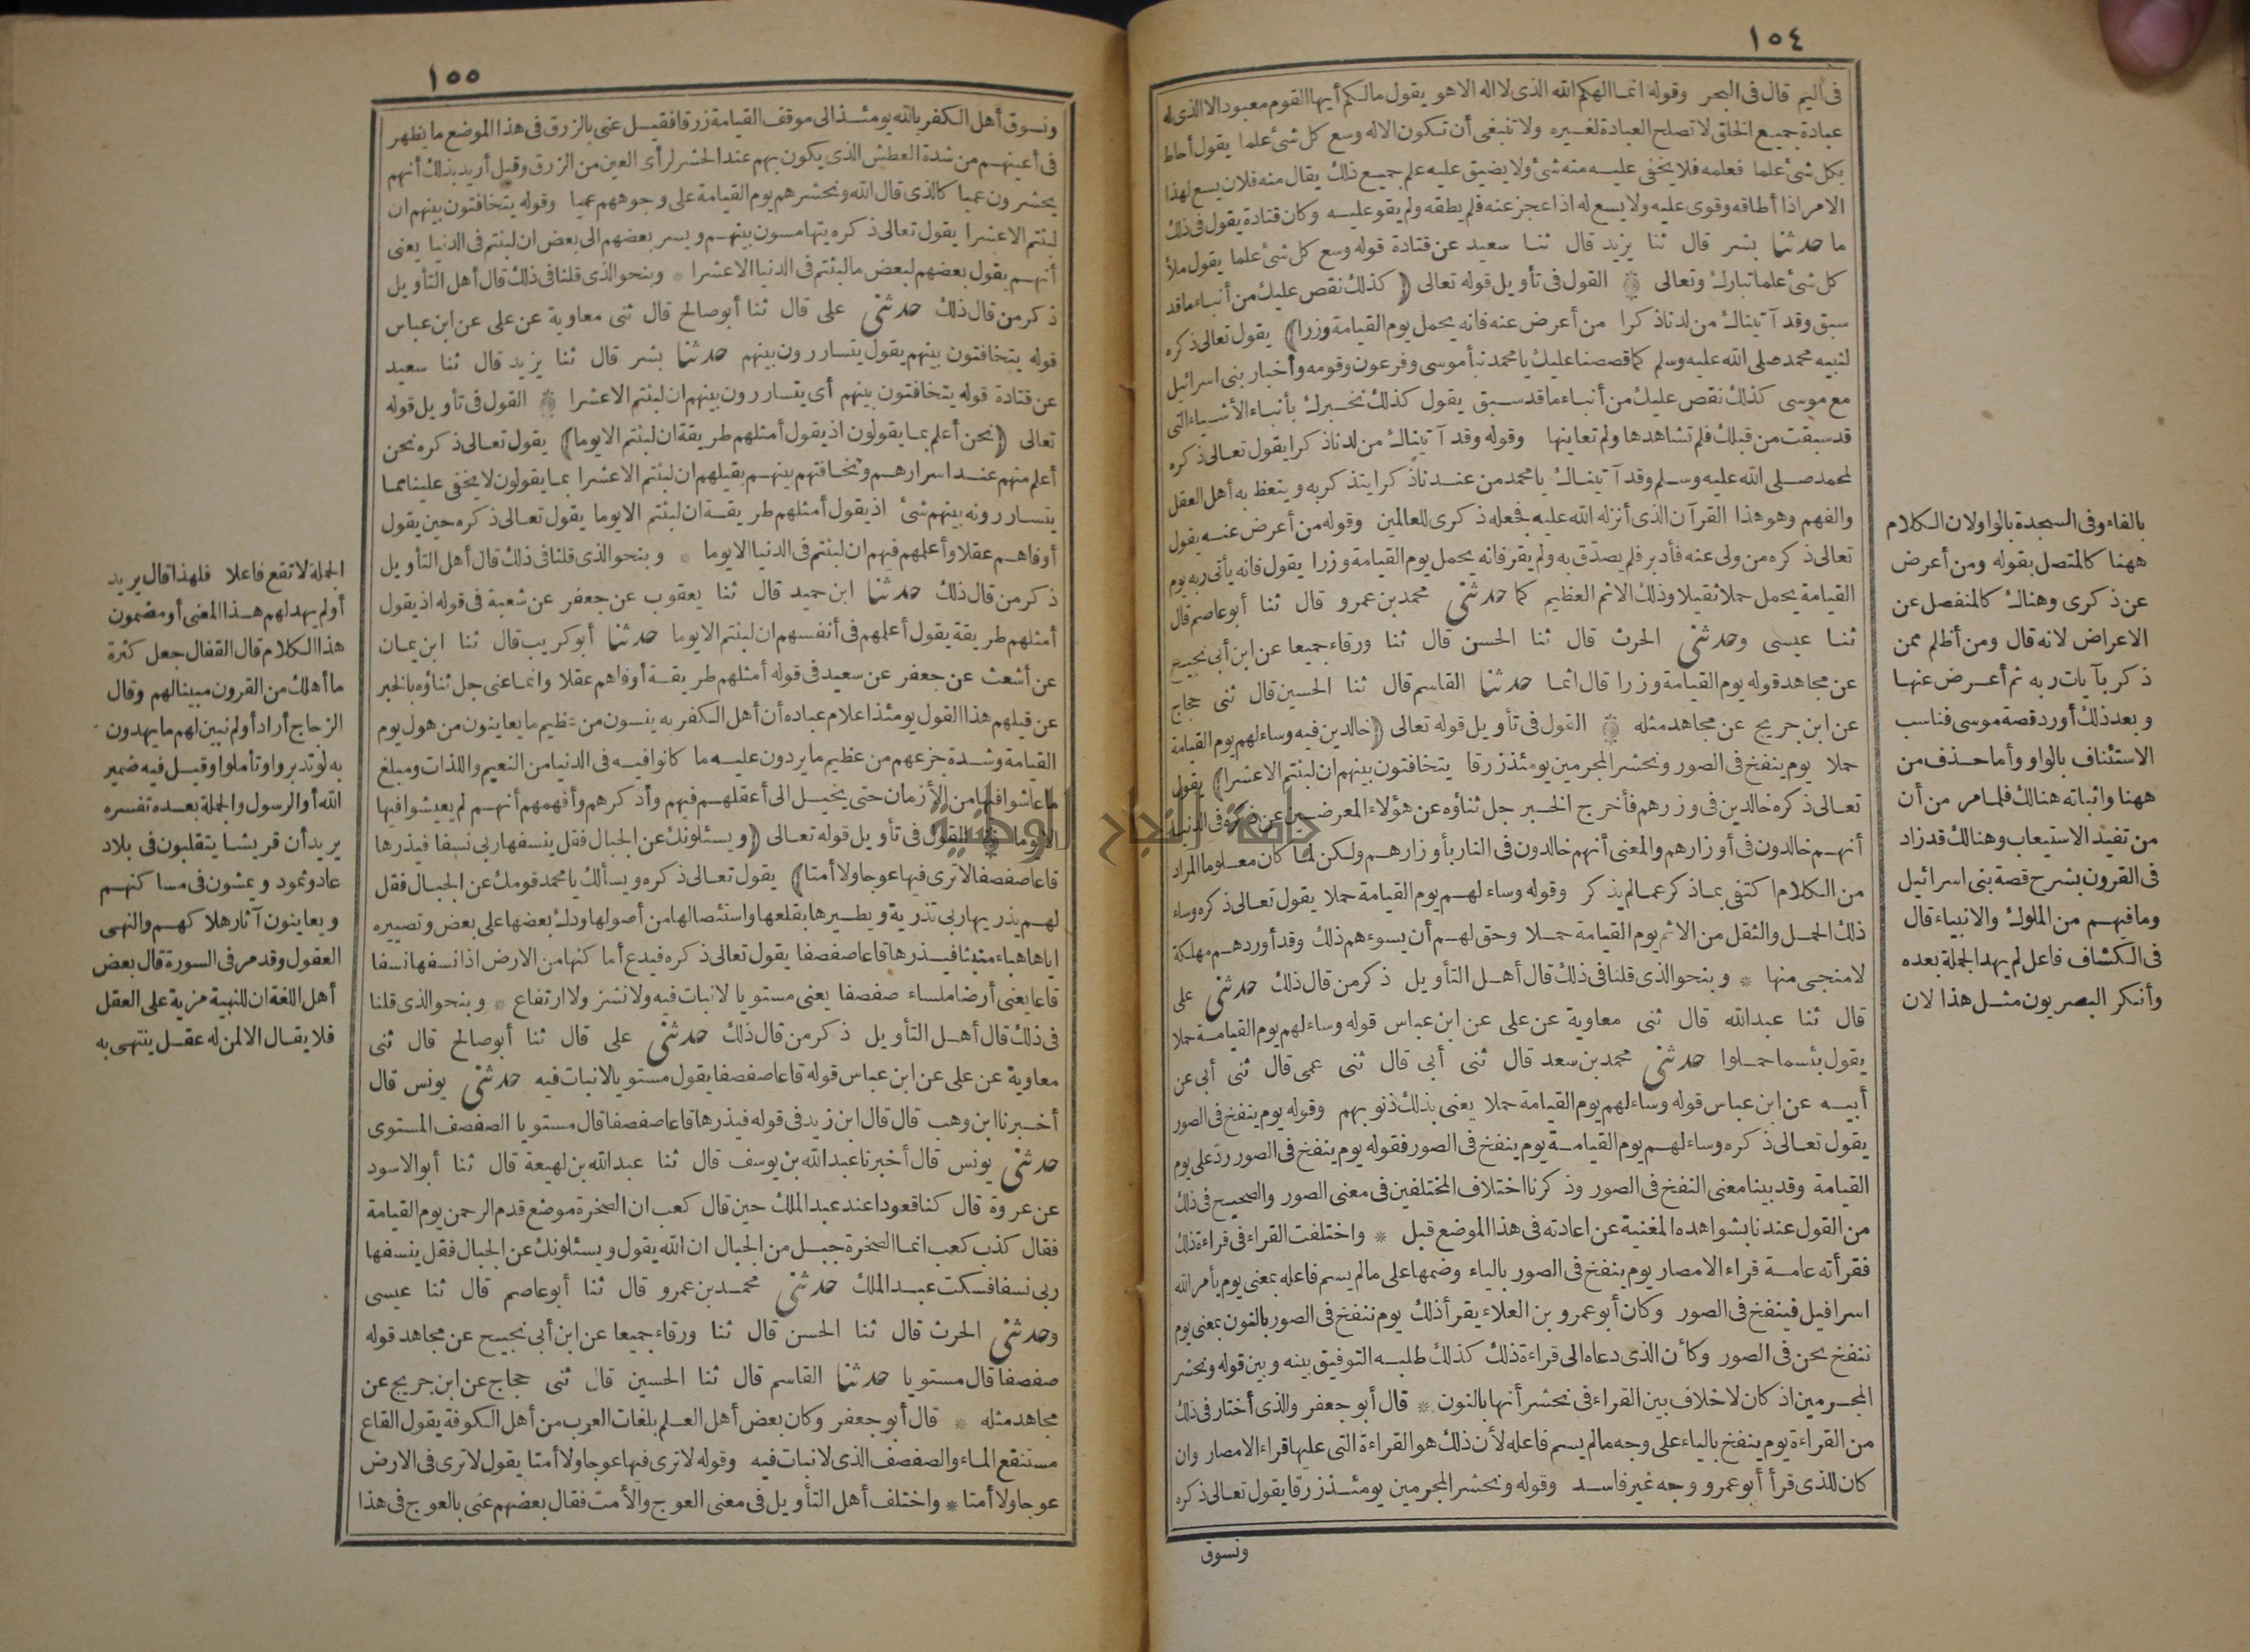 ١٥٤
فى اليم قال فى البحر وقوله انما الهكم الله الذى لا اله الا هو يقول مالكم أيها القوم معبود الا الذى له
عبادة جميع الخلق لا تصلح العبادة لغيره ولا تنبغى أن تكون الا له وسع كل شئ علما يقول أحاط
بكل شئ علما فعلمه فلا يخفى عليه منه شئ ولا يضيق عليه علم جميع ذلك يقال منه فلان يسع لهذا
الامر اذا أطاقه وقوى عليه ولا يسع له اذا عجز عنه فلم يطقه ولم يقو عليه وكان قتادة يقول فى ذلك
ما حدثنا بشر قال ثنا يزيد قال ثنا سعيد عن قتادة قوله وسع كل شئ علما يقول ملأ
كل شئ علما تبارك وتعالى القول فى تأويل قوله تعالى (كذلك نقص عليك من أنباء ما قد
سبق وقد آتيناك من لدنا ذكرا من أعرض عنه فانه يحمل يوم القيامة وزرا) يقول تعالى ذكره
لنبيه محمد صلى الله عليه وسلم كما قصصنا عليك يا محمد نبأ موسى وفرعون وقومه وأخبار بنى اسرائيل
مع موسى كذلك نقص عليك من أنباء ما قد سبق يقول كذلك نخبرك بأنباء الأشياء التى
قد سبقت من قبلك فلم تشاهدها ولم تعاينها وقوله وقد آتيناك من لدنا ذكرا يقول تعالى ذكره
لمحمد صلى الله عليه وسلم وقد آتيناك يا محمد من عندنا ذكرا يتذكر به ويتعظ به أهل العقل
والفهم وهو هذا القرآن الذى أنزله الله عليه فجعله ذكرى للعالمين وقوله من أعرض عنه يقول
تعالى ذكره من ولى عنه فأدبر فلم يصدّق به ولم يقر فانه يحمل يوم القيامة وزرا يقول فانه يأتى ربه يوم
القيامة يحمل حملا ثقيلا وذلك الاثم العظيم كما حدثنى محمد بن عمرو قال ثنا أبو عاصم قال
ثنا عيسى وحدثنى الحرث قال ثنا الحسن قال ثنا ورقاء جميعا عن ابن أبى نجيح
عن مجاهد قوله يوم القيامة وزرا قال اثما حدثنا القاسم قال ثنا الحسين قال ثنى حجاج
عن ابن جريج عن مجاهد مثله القول فى تأويل قوله تعالى (خالدين فيه وساء لهم يوم القيامة
حملا يوم ينفخ فى الصور ونحشر المجرمين يومئذ زرقا يتخافتون بينهم ان لبثتم الا عشرا) يقول
تعالى ذكره خالدين فى وزرهم فأخرج الخبر جل ثناؤه عن هؤلاء المعرضين عن ذكره فى الدنيا
أنهم خالدون فى أوزارهم والمعنى أنهم خالدون فى النار بأوزارهم ولكن لما كان معلوما المراد
من الكلام اكتفى بما ذكر عما لم يذكر وقوله وساء لهم يوم القيامة حملا يقول تعالى ذكره وساء
ذلك الحمل والثقل من الاثم يوم القيامة حملا وحق لهم أن يسوءهم ذلك وقد أوردهم مهلكة
لا منجى منها * وبنحو الذى قلنا فى ذلك قال أهل التأويل ذكر من قال ذلك حدثنى على
قال ثنا عبد الله قال ثنى معاوية عن على عن ابن عباس قوله وساء لهم يوم القيامة حملا
يقول بئسما حملوا حدثنى محمد بن سعد قال ثنى أبى قال ثنى عمى قال ثنى أبى عن
أبيه عن ابن عباس قوله وساء لهم يوم القيامة حملا يعنى بذلك ذنوبهم وقوله يوم ينفخ فى الصور
يقول تعالى ذكره وساء لهم يوم القيامة يوم ينفخ فى الصور فقوله يوم ينفخ فى الصور ردّ على يوم
القيامة وقد بينا معنى النفخ فى الصور وذكرنا اختلاف المختلفين فى معنى الصور والصحيح فى ذلك
من القول عندنا بشواهده المغنية عن اعادته فى هذا الموضع قبل * واختلفت القراء فى قراءة ذلك
فقرأته عامة قراء الامصار يوم ينفخ فى الصور بالياء وضمها على ما لم يسم فاعله بمعنى يوم يأمر الله
اسرافيل فينفخ فى الصور وكان أبو عمرو بن العلاء يقرأ ذلك يوم ننفخ فى الصور بالنون بمعنى يوم
ننفخ نحن فى الصور وكأن الذى دعاه الى قراءة ذلك كذلك طلبه التوفيق بينه وبين قوله ونحشر
المجرمين اذ كان لا خلاف بين القراء فى نحشر أنها بالنون * قال أبو جعفر والذى أختار فى ذلك
من القراءة يوم ينفخ بالياء على وجه ما لم يسم فاعله لأن ذلك هو القراءة التى عليها قراء الامصار وان
كان للذى قرأ أبو عمرو وجه غير فاسد وقوله ونحشر المجرمين يومئذ زرقا يقول تعالى ذكره
ونسوق
بالفاء وفى السجدة بالواو لان الكلام
ههنا كالمتصل بقوله ومن أعرض
عن ذكرى وهناك كالمنفصل عن
الاعراض لانه قال ومن أظلم ممن
ذكر بآيات ربه ثم أعرض عنها
وبعد ذلك أورد قصة موسى فناسب
الاستئناف بالواو وأما حذف من
ههنا واثباته هنالك فلما مر من أن
من تفيد الاستيعاب وهنالك قد زاد
فى القرون بشرح قصة بنى اسرائيل
وما فيهم من الملوك والانبياء قال
فى الكشاف فاعل لم يهد الجملة بعده
وأنكر البصريون مثل هذا لان
١٥٥
ونسوق أهل الكفر بالله يومئذ الى موقف القيامة زرقا فقيل عنى بالزرق فى هذا الموضع ما يظهر
فى أعينهم من شدة العطش الذى يكون بهم عند الحشر لرأى العين من الزرق وقيل أريد بذلك أنهم
يحشرون عميا كالذى قال الله ونحشرهم يوم القيامة على وجوههم عميا وقوله يتخافتون بينهم ان
لبثتم الا عشرا يقول تعالى ذكره يتهامسون بينهم ويسر بعضهم الى بعض ان لبثتم فى الدنيا يعنى
أنهم يقول بعضهم لبعض ما لبثتم فى الدنيا الا عشرا * وبنحو الذى قلنا فى ذلك قال أهل التأويل
ذكر من قال ذلك حدثنى على قال ثنا أبو صالح قال ثنى معاوية عن على عن ابن عباس
قوله يتخافتون بينهم يقول يتساررون بينهم حدثنا بشر قال ثنا يزيد قال ثنا سعيد
عن قتادة قوله يتخافتون بينهم أى يتساررون بينهم ان لبثتم الا عشرا القول فى تأويل قوله
تعالى (نحن أعلم بما يقولون اذ يقول أمثلهم طريقة ان لبثتم الا يوما) يقول تعالى ذكره نحن
أعلم منهم عند اسرارهم وتخافتهم بينهم بقيلهم ان لبثتم الا عشرا بما يقولون لا يخفى علينا مما
يتساررونه بينهم شئ اذ يقول أمثلهم طريقة ان لبثتم الا يوما يقول تعالى ذكره حين يقول
أوفاهم عقلا وأعلمهم فيهم ان لبثتم فى الدنيا الا يوما * وبنحو الذى قلنا فى ذلك قال أهل التأويل
ذكر من قال ذلك حدثنا ابن حميد قال ثنا يعقوب عن جعفر عن شعبة فى قوله اذ يقول
أمثلهم طريقة يقول أعلمهم فى أنفسهم ان لبثتم الا يوما حدثنا أبو كريب قال ثنا ابن يمان
عن أشعث عن جعفر عن سعيد فى قوله أمثلهم طريقة أوفاهم عقلا وانما عنى جل ثناؤه بالخبر
عن قيلهم هذا القول يومئذ اعلام عباده أن أهل الكفر به ينسون من عظيم ما يعاينون من هول يوم
القيامة وشدة جزعهم من عظيم ما يردون عليه ما كانوا فيه فى الدنيا من النعيم واللذات ومبلغ
ما عاشوا فيها من الأزمان حتى يخيل الى أعقلهم فيهم وأذكرهم وأفهمهم أنهم لم يعيشوا فيها
الا يوما القول فى تأويل قوله تعالى (ويسئلونك عن الجبال فقل ينسفها ربى نسفا فيذرها
قاعا صفصفا لا ترى فيها عوجا ولا أمتا) يقول تعالى ذكره ويسألك يا محمد قومك عن الجبال فقل
لهم يذريها ربى تذرية ويطيرها بقلعها واستئصالها من أصولها ودك بعضها على بعض وتصييره
اياها هباء منبثا فيذرها قاعا صفصفا يقول تعالى ذكره فيدع أماكنها من الارض اذا نسفها نسفا
قاعا يعنى أرضا ملساء صفصفا يعنى مستويا لا نبات فيه ولا نشز ولا ارتفاع * وبنحو الذى قلنا
فى ذلك قال أهل التأويل ذكر من قال ذلك حدثنى على قال ثنا أبو صالح قال ثنى
معاوية عن على عن ابن عباس قوله قاعا صفصفا يقول مستويا لا نبات فيه حدثنى يونس قال
أخبرنا ابن وهب قال قال ابن زيد فى قوله فيذرها قاعا صفصفا قال مستويا الصفصف المستوى
حدثنى يونس قال أخبرنا عبد الله بن يوسف قال ثنا عبد الله بن لهيعة قال ثنا أبو الاسود
عن عروة قال كنا قعودا عند عبد الملك حين قال كعب ان الصخرة موضع قدم الرحمن يوم القيامة
فقال كذب كعب انما الصخرة جبل من الجبال ان الله يقول ويسئلونك عن الجبال فقل ينسفها
ربى نسفا فسكت عبد الملك حدثنى محمد بن عمرو قال ثنا أبو عاصم قال ثنا عيسى
وحدثنى الحرث قال ثنا الحسن قال ثنا ورقاء جميعا عن ابن أبى نجيح عن مجاهد قوله
صفصفا قال مستويا حدثنا القاسم قال ثنا الحسين قال ثنى حجاج عن ابن جريج عن
مجاهد مثله * قال أبو جعفر وكان بعض أهل العلم بلغات العرب من أهل الكوفة يقول القاع
مستنقع الماء والصفصف الذى لا نبات فيه وقوله لا ترى فيها عوجا ولا أمتا يقول لا ترى فى الارض
عوجا ولا أمتا * واختلف أهل التأويل فى معنى العوج والأمت فقال بعضهم عنى بالعوج فى هذا
الجملة لا تقع فاعلا فلهذا قال يريد
أولم يهد لهم هذا المعنى أو مضمون
هذا الكلام قال القفال جعل كثرة
ما أهلك من القرون مبينا لهم وقال
الزجاج أراد أولم نبين لهم ما يهدون
به لو تدبروا وتأملوا وقيل فيه ضمير
الله أو الرسول والجملة بعده تفسره
يريد أن قريشا يتقلبون فى بلاد
عاد وثمود ويمشون فى مساكنهم
ويعاينون آثار هلاكهم والنهى
العقول وقد مر فى السورة قال بعض
أهل اللغة ان للنهية مزية على العقل
فلا يقال الا لمن له عقل ينتهى به
جامعة النجاح الوطنية